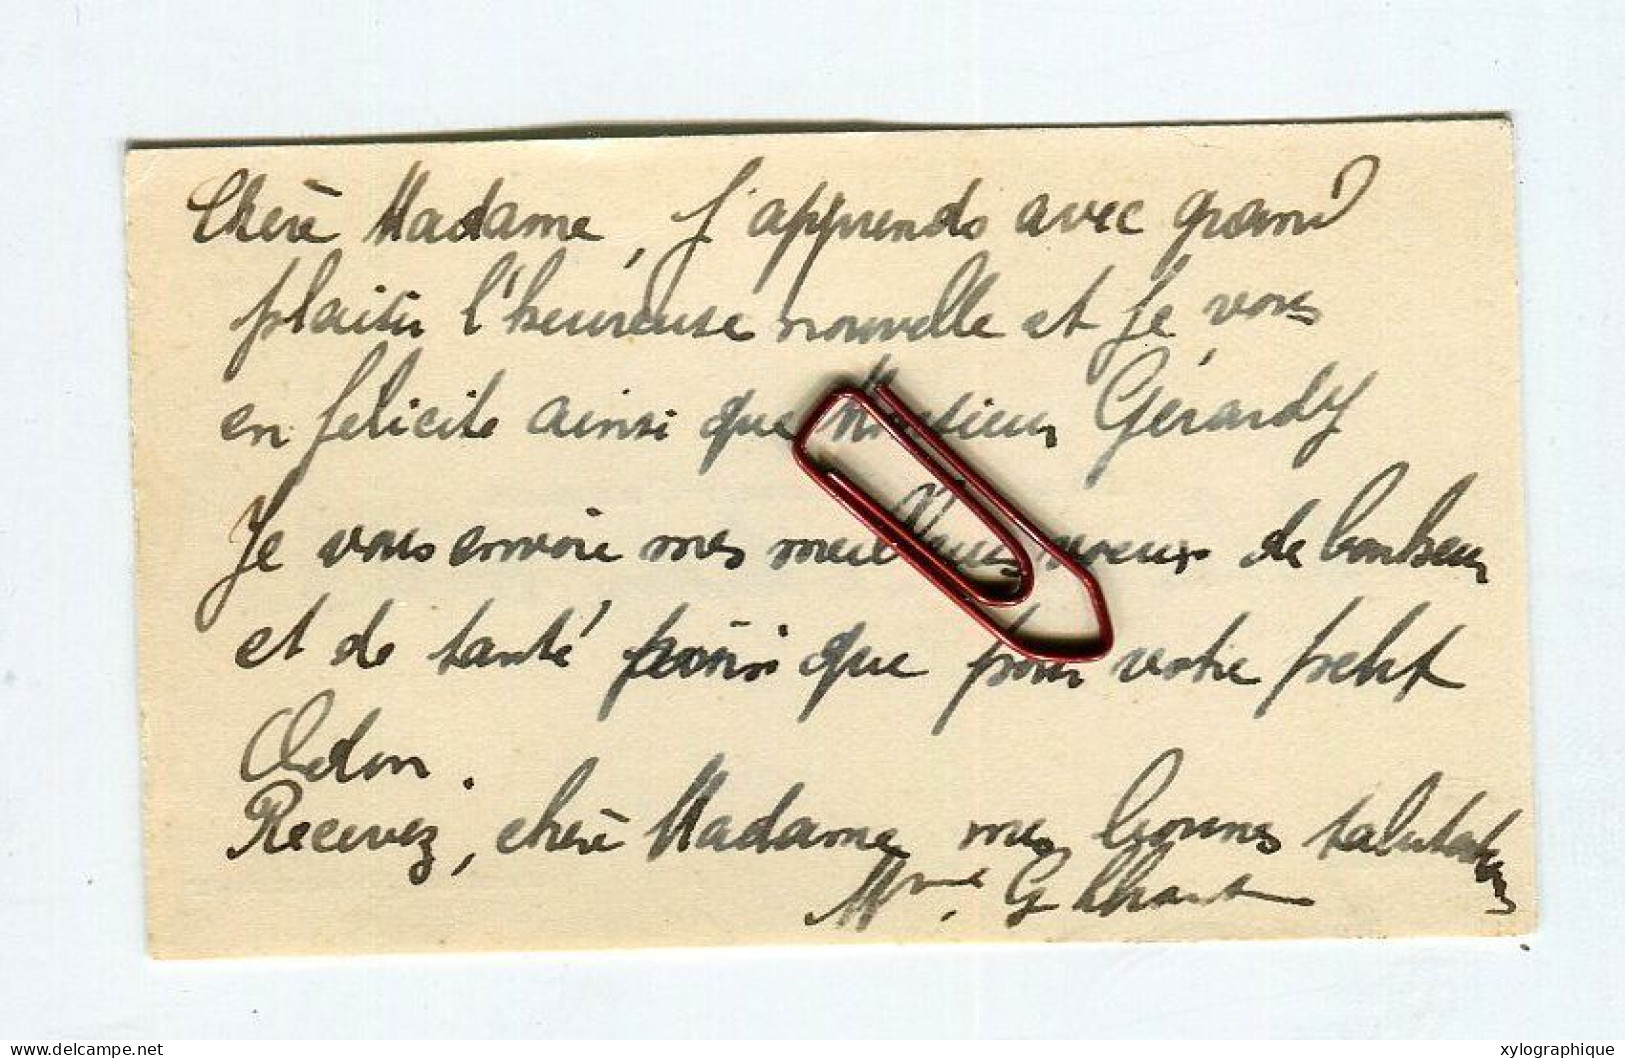 Chère Madame, J'apprends avec grand
plaisir l'heureuse nouvelle et je vous
en félicite ainsi que Monsieur Gérardy
Je vous envoie mes meilleurs voeux de bonheur
et de santé que pour votre petit
Odon.
Recevez, chère Madame mes bonnes salutations
Mme G
www.delcampe.net
xylographique